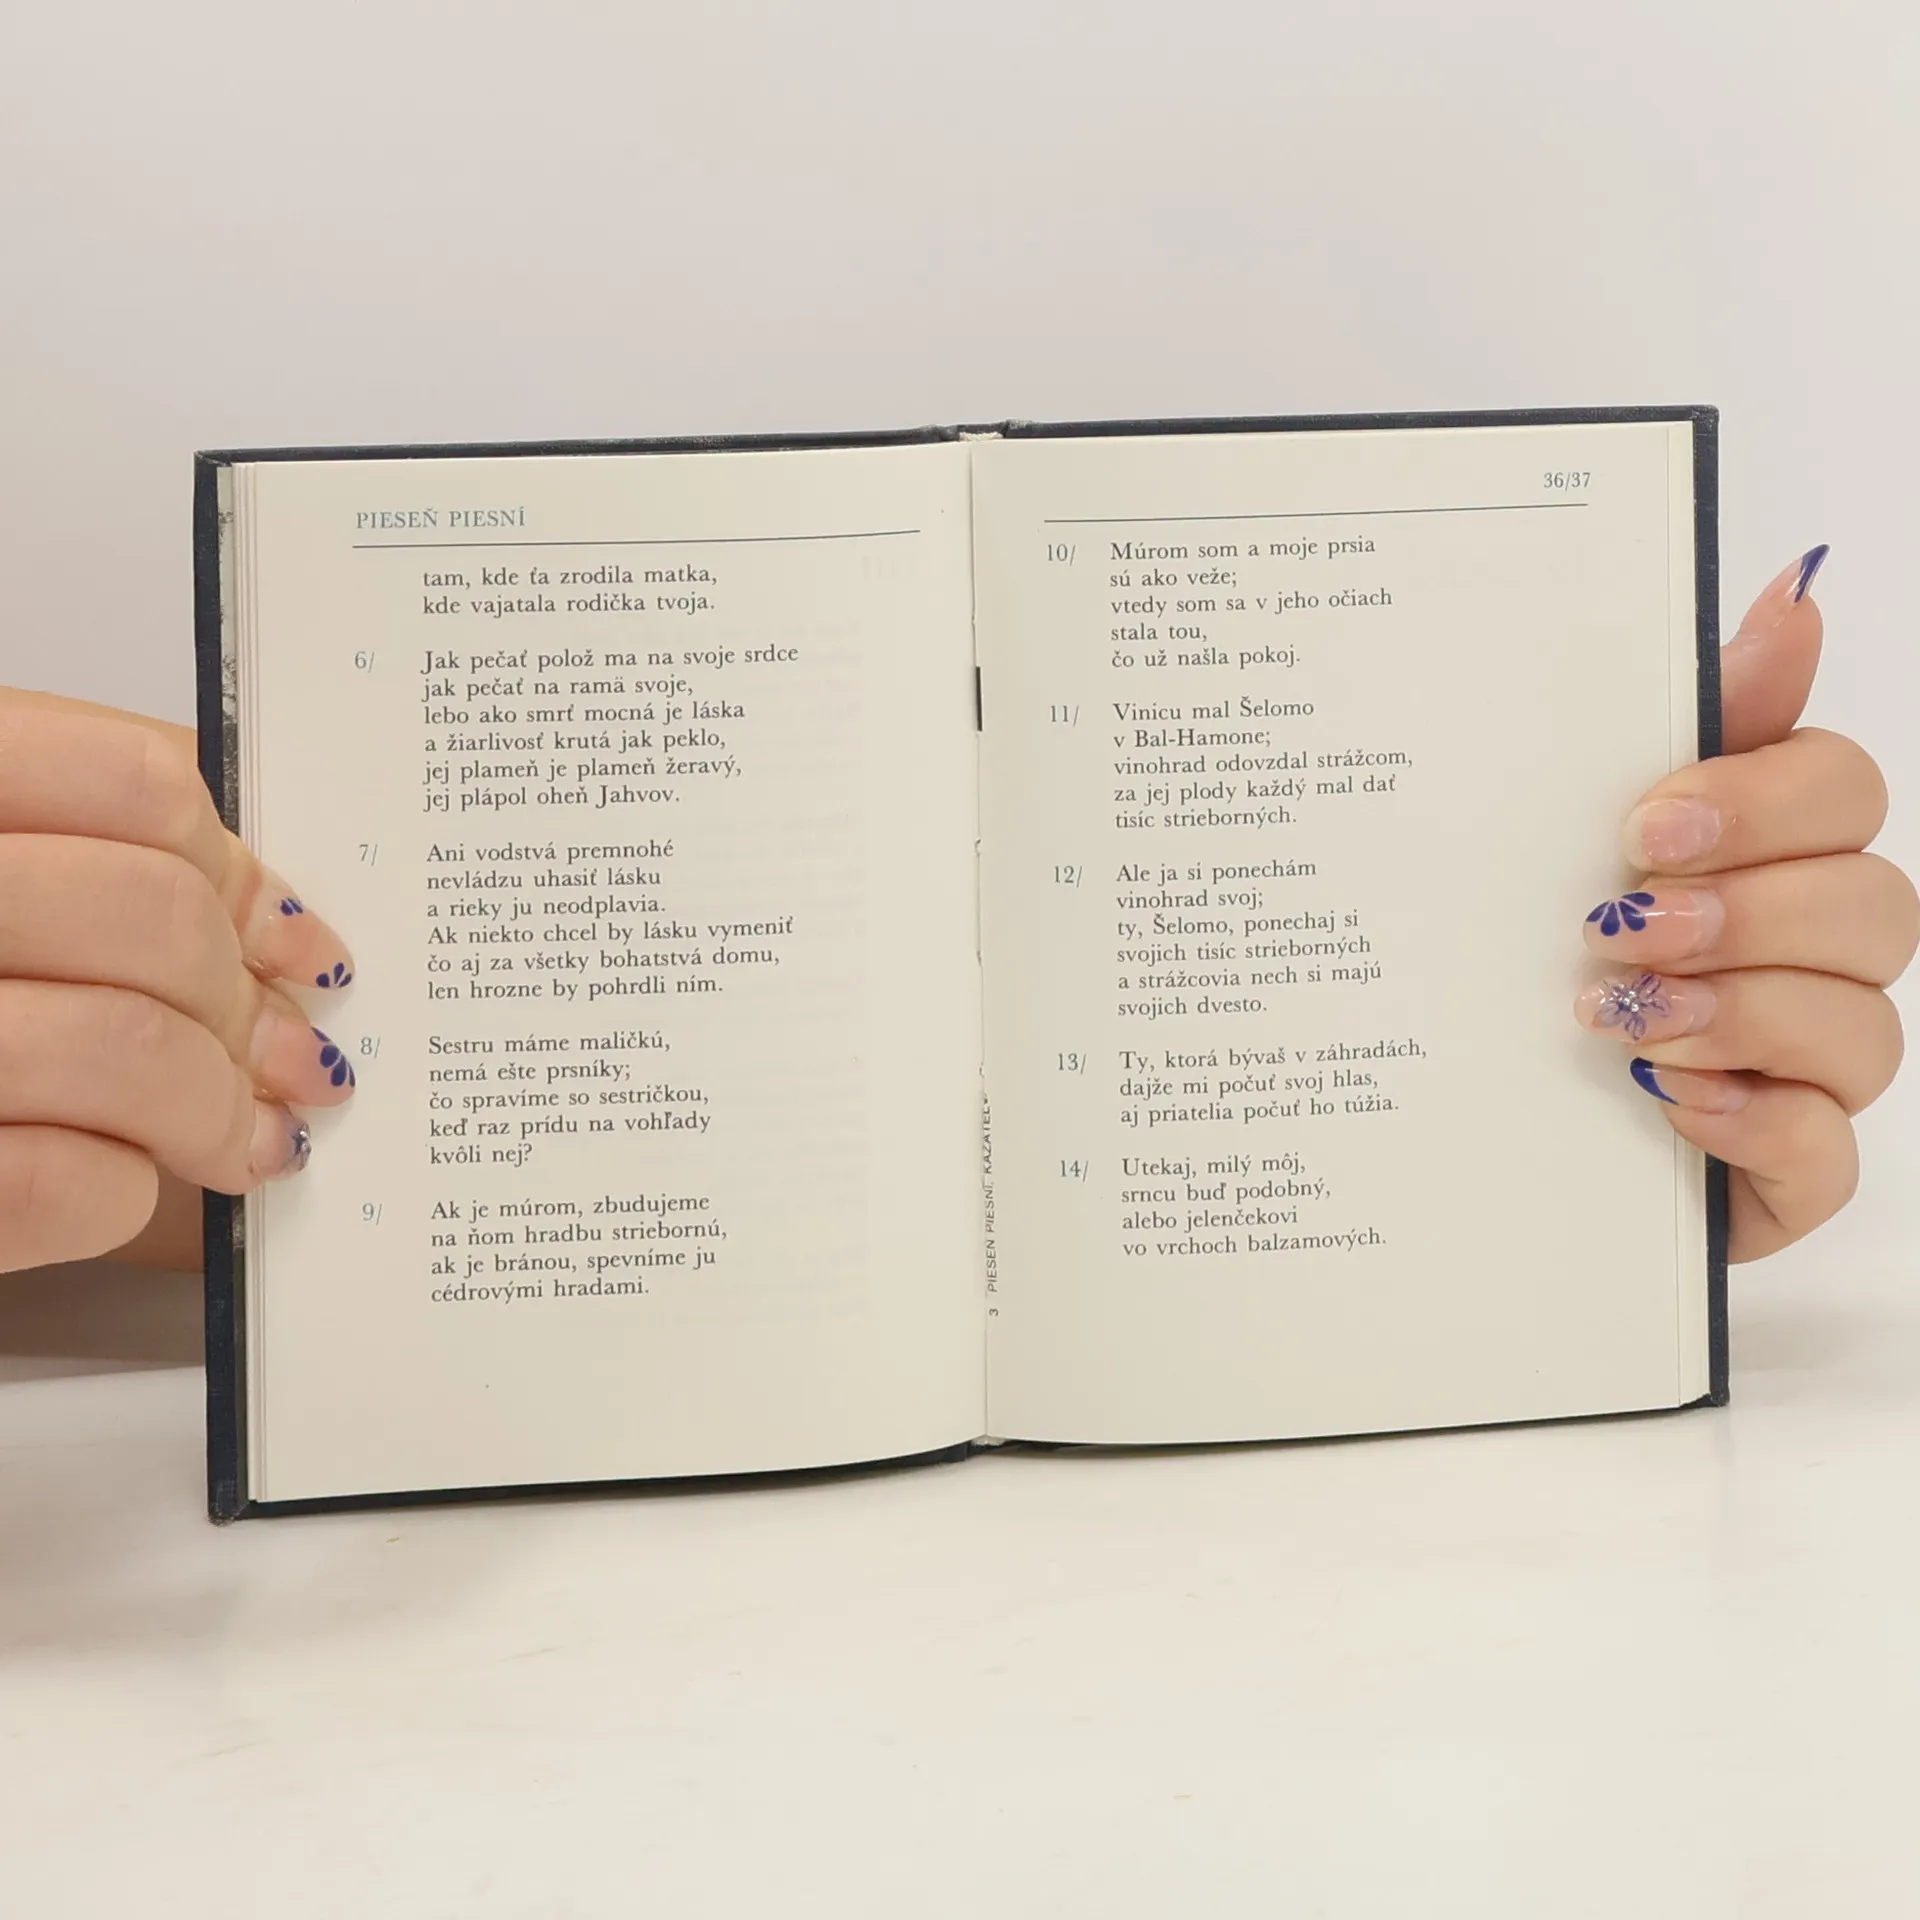 PIESEŇ PIESNÍ
tam, kde ťa zrodila matka,
kde vajatala rodička tvoja.
6/ Jak pečať polož ma na svoje srdce
jak pečať na ramä svoje,
lebo ako smrť mocná je láska
a žiarlivosť krutá jak peklo,
jej plameň je plameň žeravý,
jej plápol oheň Jahvov.
7/ Ani vodstvá premnohé
nevládzu uhasiť lásku
a rieky ju neodplavia.
Ak niekto chcel by lásku vymeniť
čo aj za všetky bohatstvá domu,
len hrozne by pohrdli ním.
8/ Sestru máme maličkú,
nemá ešte prsníky;
čo spravíme so sestričkou,
keď raz prídu na vohľady
kvôli nej?
9/ Ak je múrom, zbudujeme
na ňom hradbu striebornú,
ak je bránou, spevníme ju
cédrovými hradami.
3 PIESEŇ PIESNÍ, KAZATEĽ
36/37
10/ Múrom som a moje prsia
sú ako veže;
vtedy som sa v jeho očiach
stala tou,
čo už našla pokoj.
11/ Vinicu mal Šelomo
v Bal-Hamone;
vinohrad odovzdal strážcom,
za jej plody každý mal dať
tisíc strieborných.
12/ Ale ja si ponechám
vinohrad svoj;
ty, Šelomo, ponechaj si
svojich tisíc strieborných
a strážcovia nech si majú
svojich dvesto.
13/ Ty, ktorá bývaš v záhradách,
dajže mi počuť svoj hlas,
aj priatelia počuť ho túžia.
14/ Utekaj, milý môj,
srncu buď podobný,
alebo jelenčekovi
vo vrchoch balzamových.